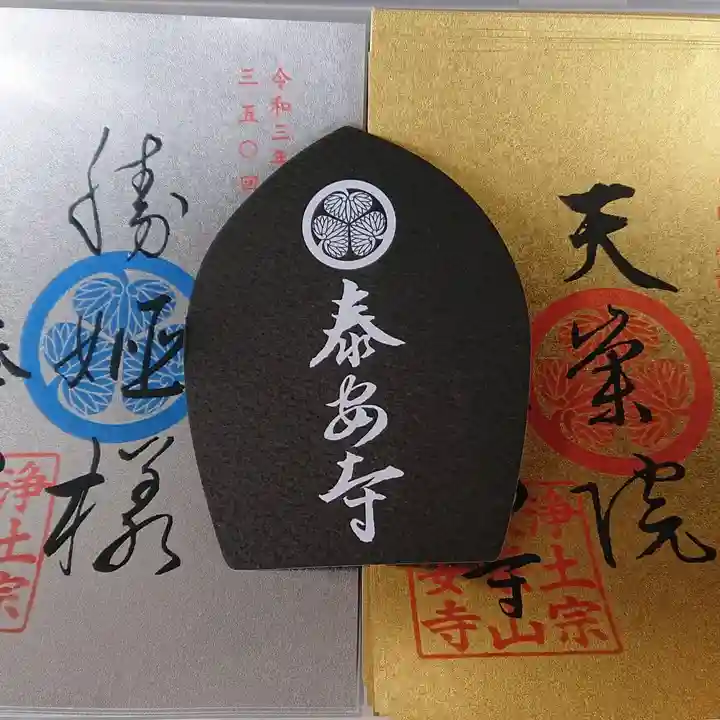 天崇院
浄土宗
山
安寺
寺
泰安寺
令和三年
三五〇回
勝姫様
浄土宗